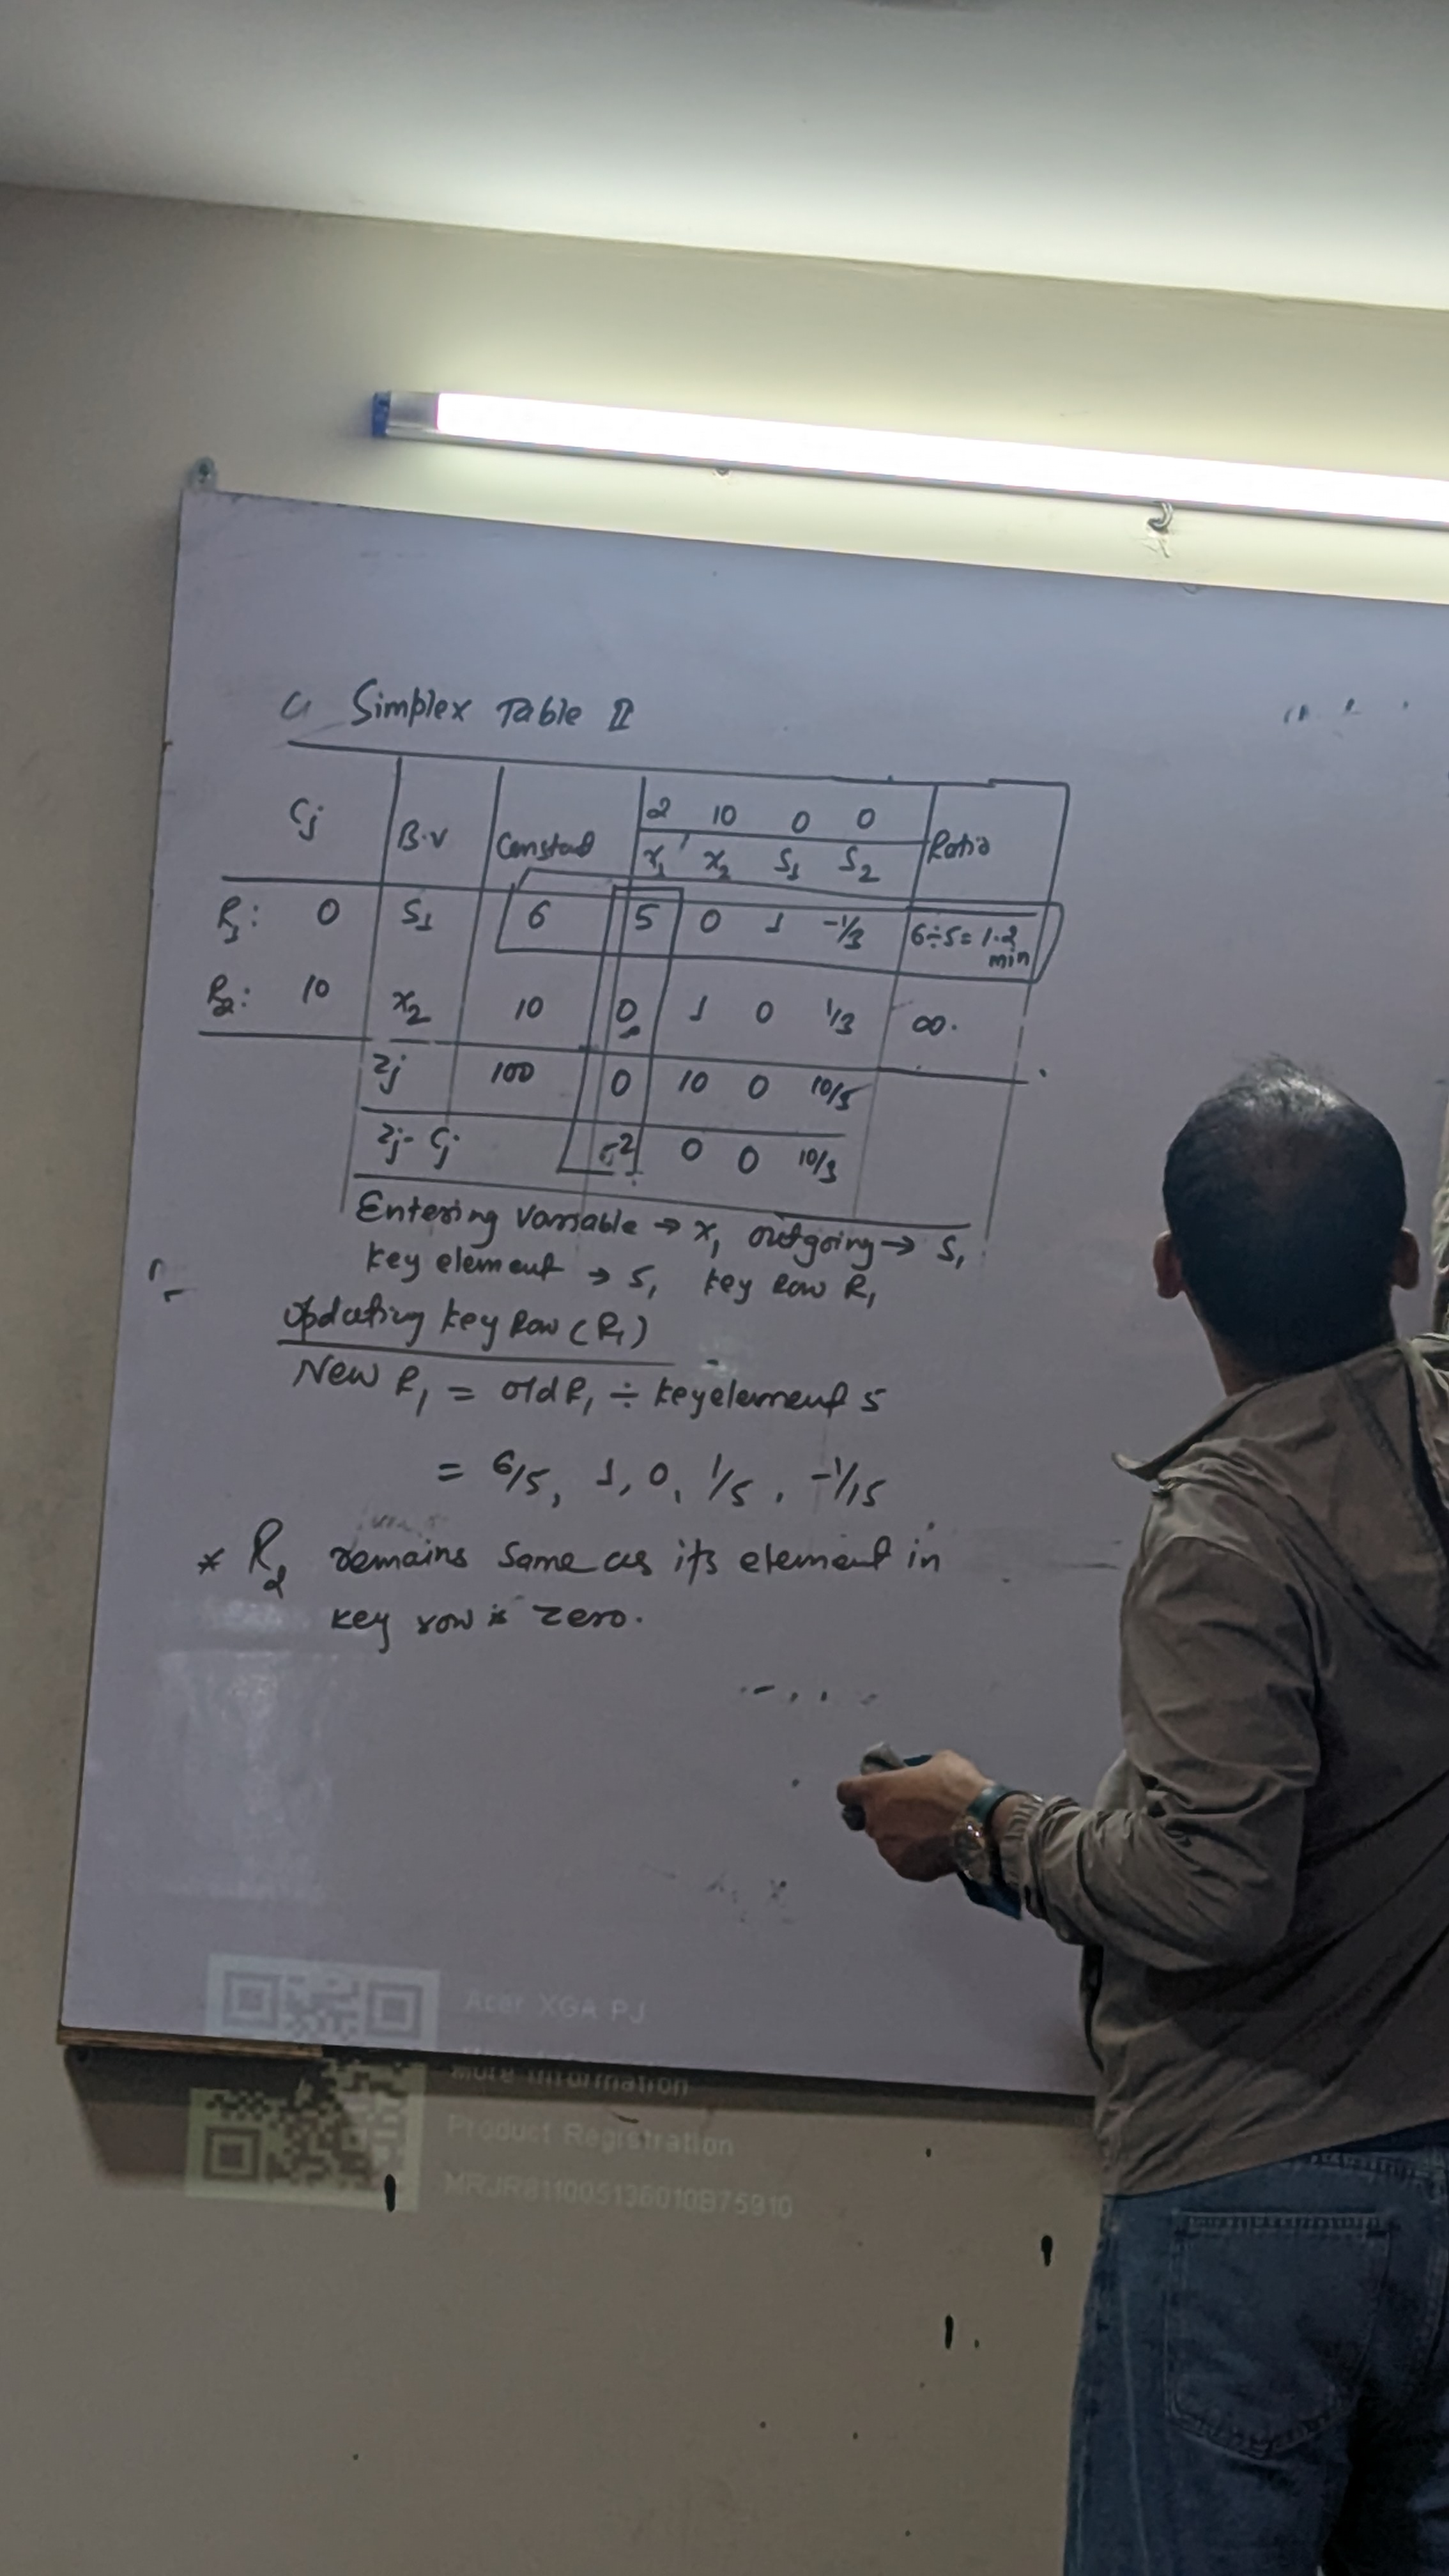 Simplex Table II
2 10 0 0
Cj B.V Constant x1 x2 S1 S2 Ratio
R1: 0 S1 6 5 0 1 -1/3 6÷5= 1.2 min
R2: 10 x2 10 0 1 0 1/3 ∞.
Zj 100 0 10 0 10/3
Zj- Cj -2 0 0 10/3
Entering Variable → x1 outgoing → S1
key element → 5, key Row R1
Updating key Row (R1)
New R1 = old R1 ÷ key element 5
= 6/5, 1, 0, 1/5, -1/15
* R2 remains same as its element in
key row is zero.
Acer XGA PJ
More Information
Product Registration